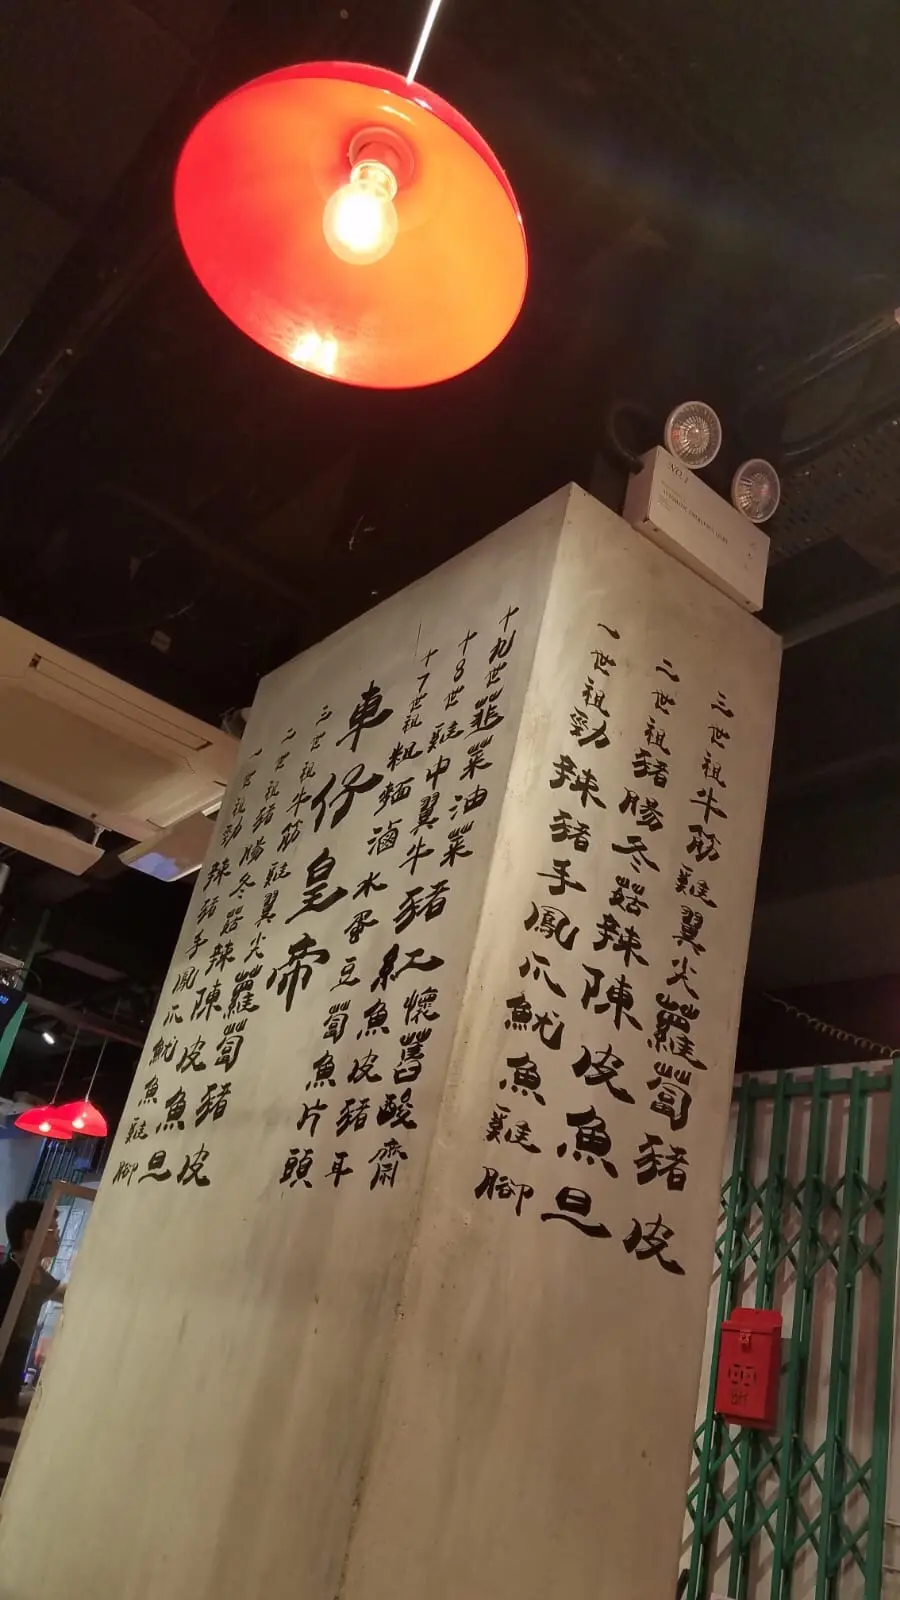 一世祖勁辣豬手鳳爪魷魚雞腳
二世祖豬腸冬菇辣陳皮魚旦
三世祖牛筋雞翼尖蘿蔔豬皮
車仔皇帝
十7世祖粗麵滷水蛋豆蔔魚片頭
十8世雞中翼牛魚皮豬耳
十九世韮菜油菜豬紅懷舊酸齋
一世祖勁辣豬手鳳爪魷魚雞腳
二世祖豬腸冬菇辣陳皮魚旦
三世祖牛筋雞翼尖蘿蔔豬皮